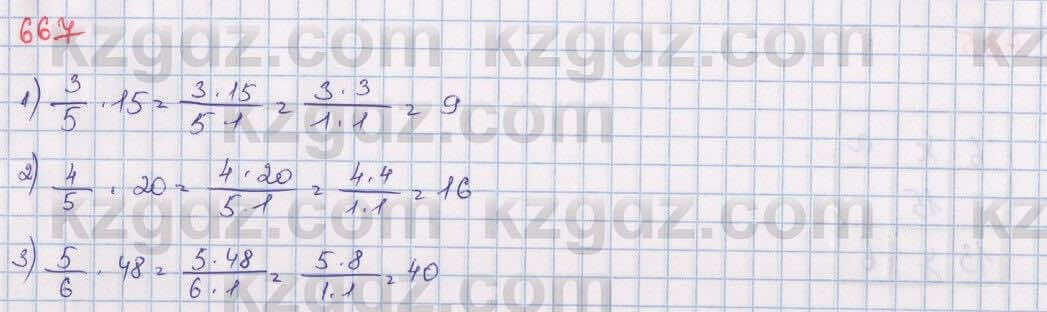 667
1) 3/5 · 15 = 3·15/5·1 = 3·3/1·1 = 9
2) 4/5 · 20 = 4·20/5·1 = 4·4/1·1 = 16
3) 5/6 · 48 = 5·48/6·1 = 5·8/1·1 = 40
kzgdz.com kzgdz.com kz
kzgdz.com
kzgdz.com kzgdz.com kz
kzgdz.com